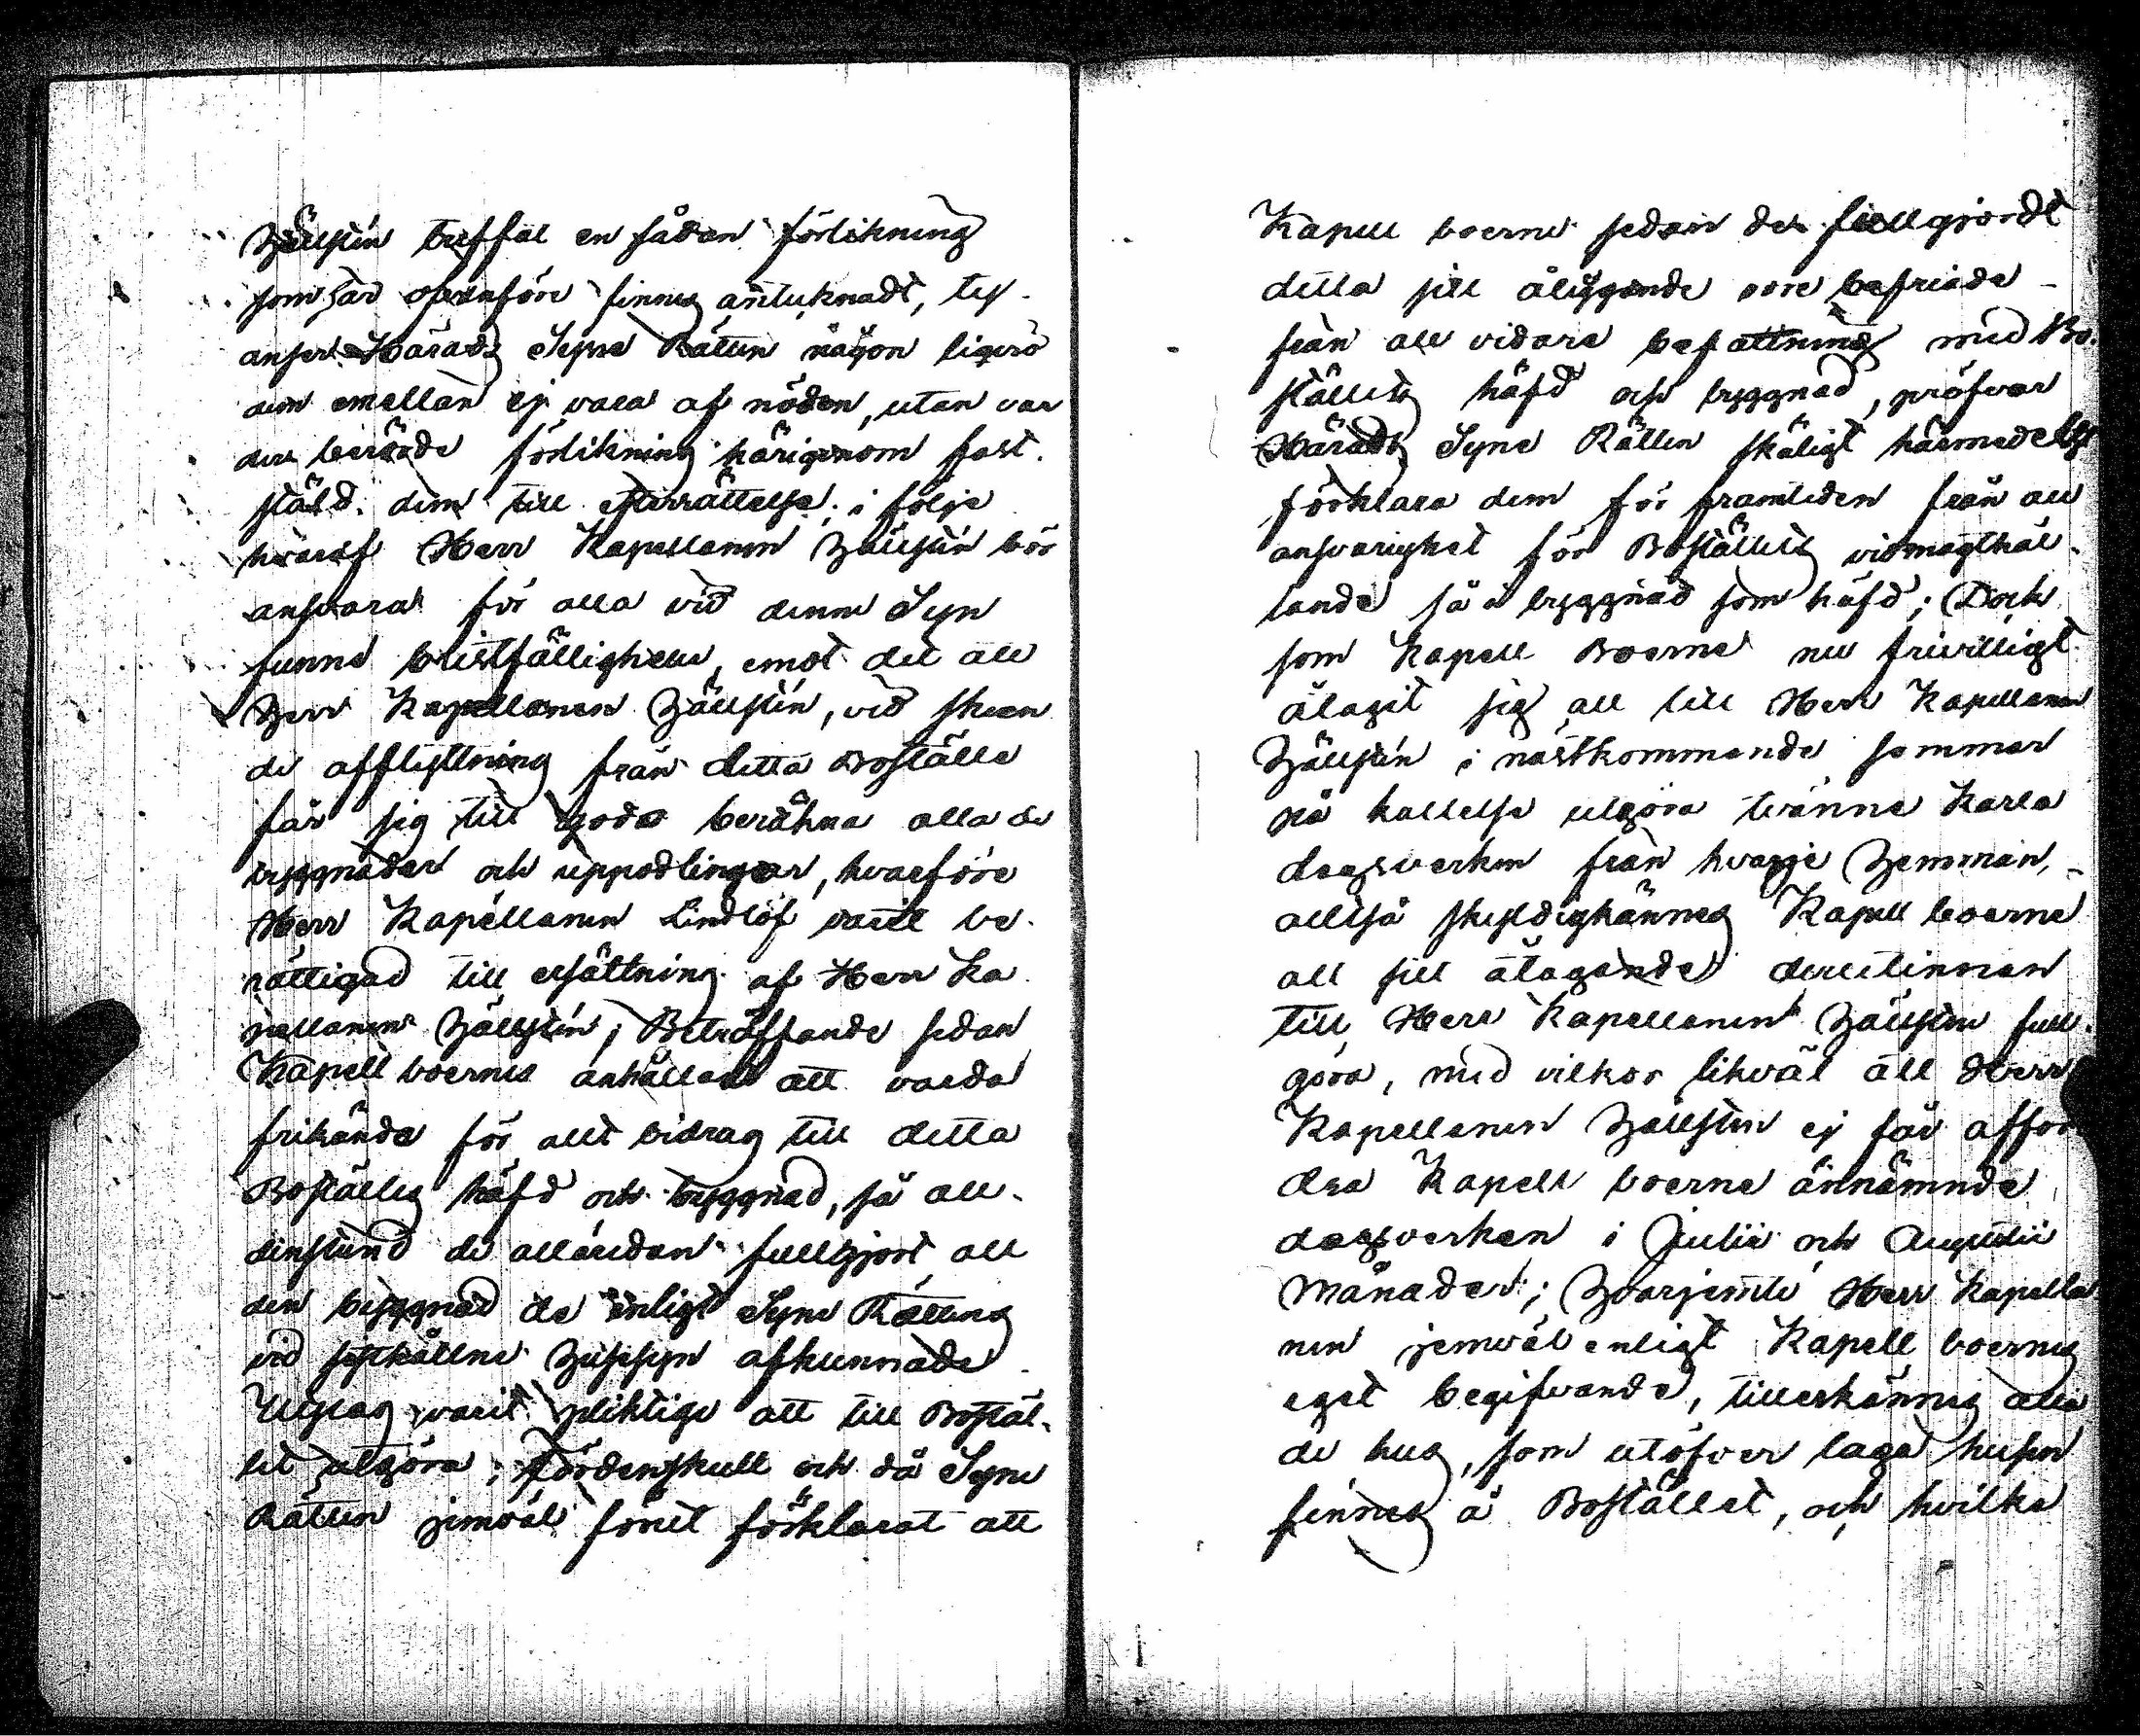 Hällstén träffat en sådan förlikning
som här ofvanföre finnes anteknadt, ty
anser Härads Syne Rätten någon ligvid
dem emellan ej vara af nöden, utan var
der berörde förlikning härigenom fast-
stäld dem till efterrättelse; i följe
häraf Herr Kapellanen Hällstén bör
ansvara för alla vid denne Syn
funne bristfälligheter, emot det att
Herr Kapellanen Hällstén, vid skeen
de afflyttning från detta Boställe
får sig till godo beräkna alla de
byggnader och uppodlingar, hvarföre
Herr Kapellanen Lindlöf varit be-
rättigad till ersättning af Herr Ka
pellanen Hällstén; Beträffande sedan
Kapell boernes anhållan att varda
frikände för allt bidrag till detta
Boställes häfd och byggnad, så all-
denstund de allaredan fullgjort all
den byggnad de enligt Syne Rättens
vid sistkållne Hussyn afkunnade
Utslag varit pliktige att till Bostäl-
let utgöra; fördenskull och då Syne
Rätten jemväl förut förklarat att
Kapell boerne sedan de fullgjordt
detta sitt åliggande vore befriade
från all vidare befattning med Bo-
ställets häfd och byggnad, pröfvar
Härads Syne Rätten skäligt härmedelst
förklara dem för framtiden från all
ansvarighet för Boställets vidmagthål-
lande så i byggnad som häfd; Dock
som Kapell Boerne nu frivilligt
ålagit sig att till Herr Kapellanen
Hällstén i nästkommande sommar
på kallelse utgöra tvänne Karla
dagsverken från hvarje Hemman,
alltså skyldigkännes Kapell boerne
att sitt åtagande derutinnan
till Herr Kapellanen Hällstén full-
göra, med vilkor likväl att Herr
Kapellanen Hällstén ej får affor
dra Kapell boerne ännämnde
dagsverken i Julii och Augustii
Månader; Hvarjemte Herr Kapella
nen jemväl enligt Kapell boernes
eget begifvande, tillerkännes alla
de hus, som utöfver laga husen
finnes å Bostället, och hvilka